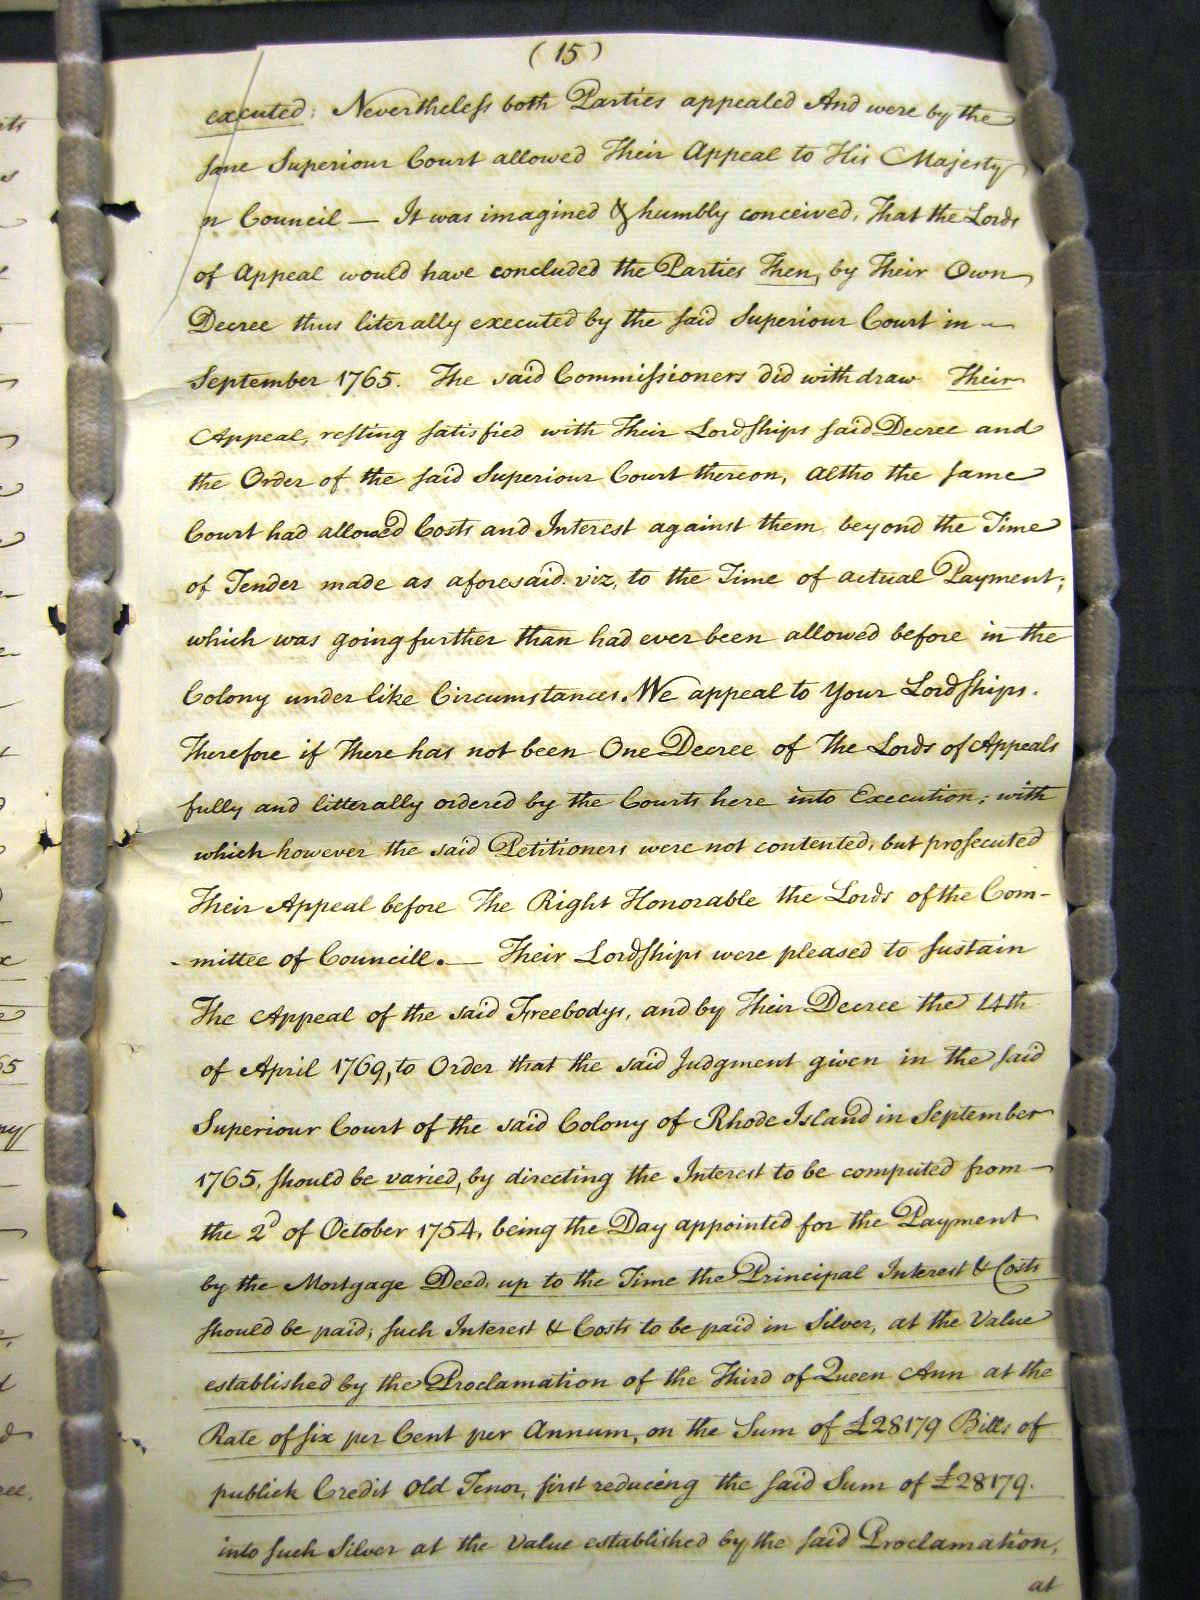 (15)
executed; Nevertheless both Parties appealed And were by the
same Superiour Court allowed Their Appeal to His Majesty
in Council — It was imagined & humbly conceived, That the Lords
of Appeal would have concluded the Parties Then, by Their Own
Decree thus literally executed by the said Superiour Court in —
September 1765. The said Commissioners did withdraw Their
Appeal, resting satisfied with Their Lordships said Decree and
the Order of the said Superiour Court thereon, altho the same
Court had allowed Costs and Interest against them beyond the Time
of Tender made as aforesaid. viz, to the Time of actual Payment;
which was going further than had ever been allowed before in the
Colony under like Circumstances. We appeal to Your Lordships.
Therefore if There has not been One Decree of The Lords of Appeals
fully and litterally ordered by the Courts here into Execution; with
which however the said Petitioners were not contented, but prosecuted
Their Appeal before The Right Honorable the Lords of the Com-
-mittee of Councill. — Their Lordships were pleased to sustain
The Appeal of the said Freebodys, and by Their Decree the 14th
of April 1769, to Order that the said Judgment given in the said
Superiour Court of the said Colony of Rhode Island in September
1765, should be varied, by directing the Interest to be computed from —
the 2d of October 1754, being the Day appointed for the Payment
by the Mortgage Deed, up to the Time the Principal Interest & Costs
should be paid; such Interest & Costs to be paid in Silver, at the Value
established by the Proclamation of the Third of Queen Ann at the
Rate of six per Cent per Annum, on the Sum of £28179 Bills of
publick Credit Old Tenor, first reducing the said Sum of £28179.
into such Silver at the Value established by the said Proclamation,
at